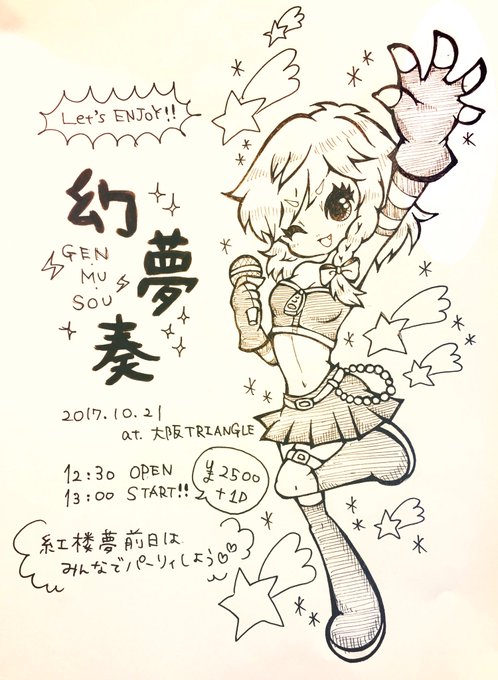 Let's ENJOY!!
幻夢奏
GEN
MU
SOU
2017.10.21
at. 大阪TRIANGLE
12:30 OPEN
13:00 START!!
¥2500
+1D
紅楼夢前日は
みんなでパーリィしよう♡♡